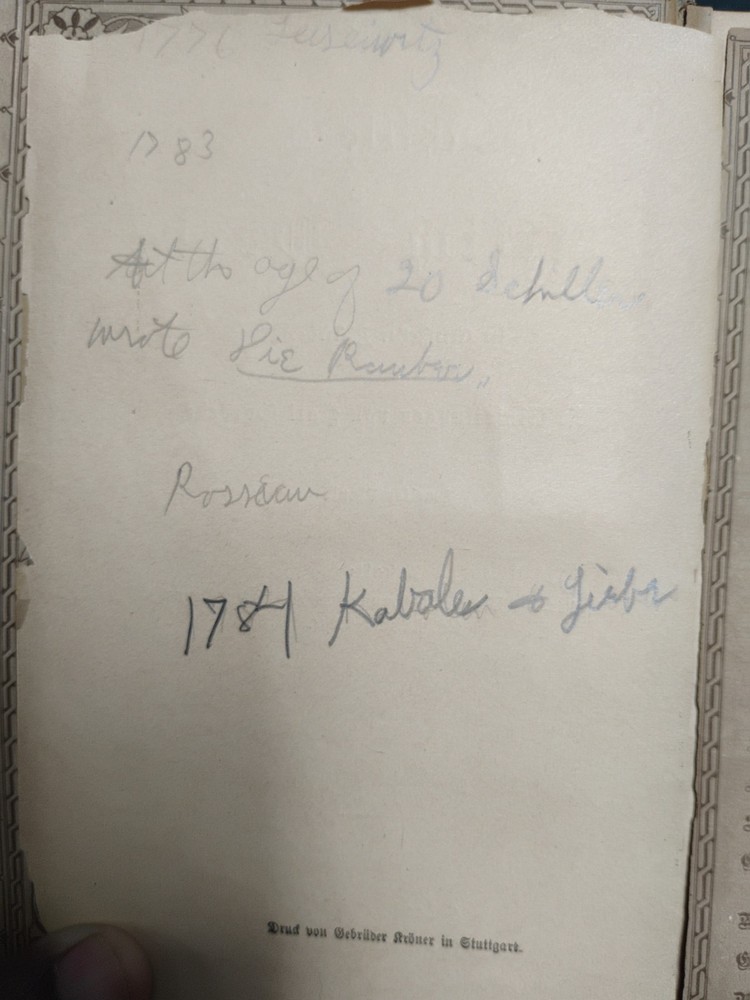 1776 Leisewitz
1783
At the age of 20 Schiller
wrote Die Rauber"
Rosseau
1784 Kabale & Liebe
Druck von Gebrüder Kröner in Stuttgart.